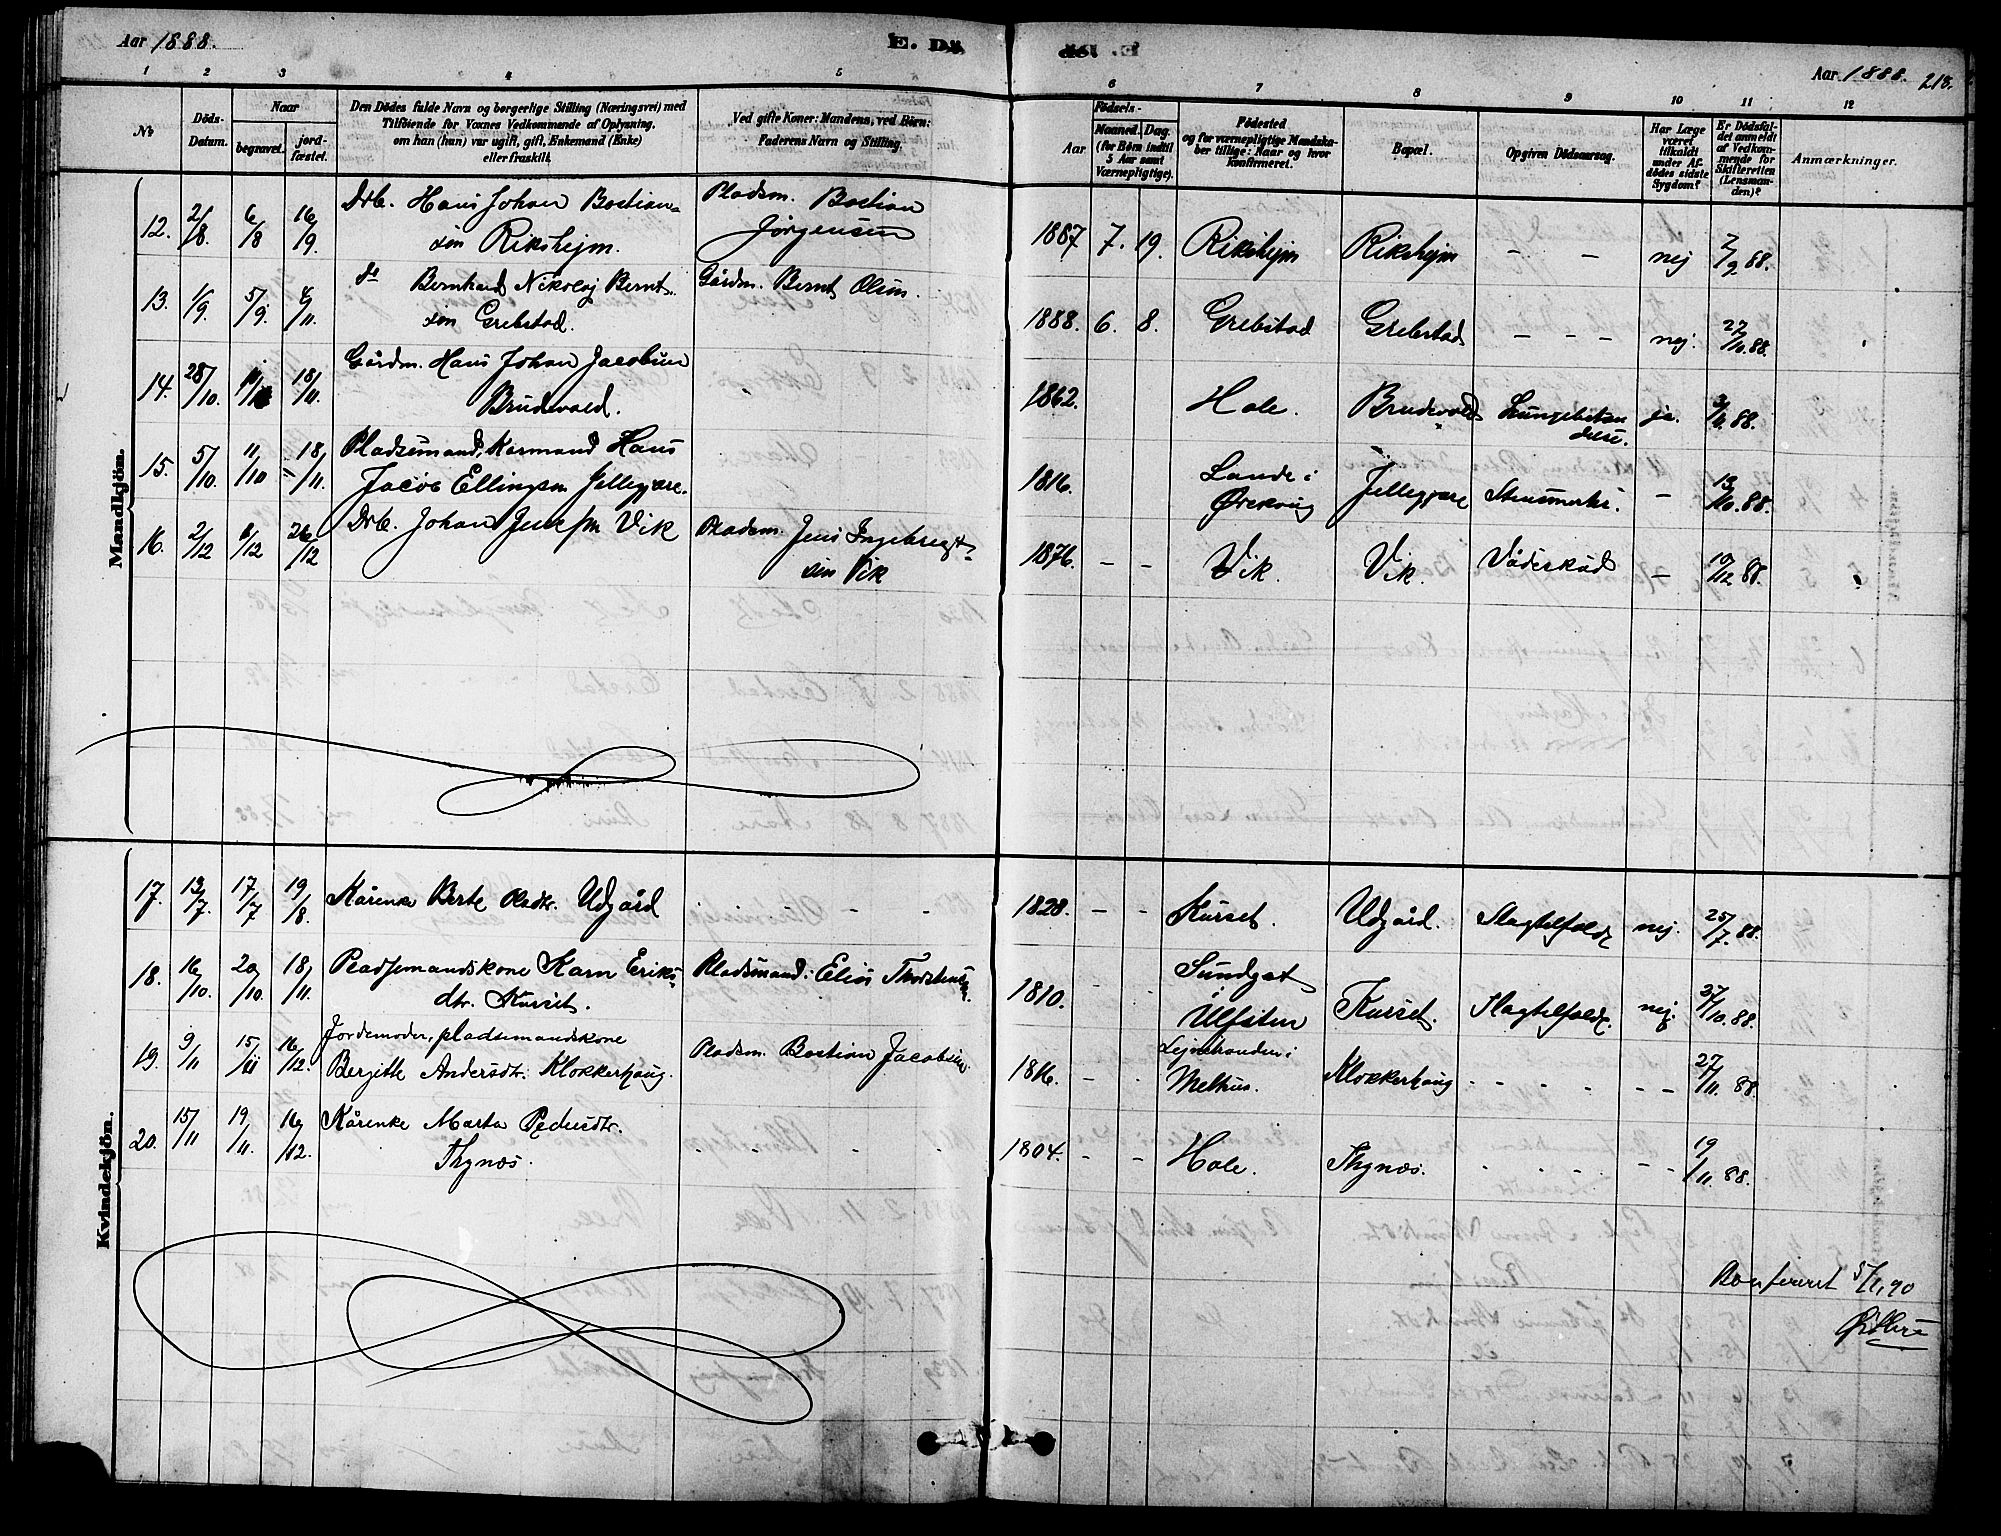 Aar 1888.
E. Dö
Aar 1888. 213.
1 2 3 4 5 6 7 8 9 10 11 12
No
Döds-
Datum.
Naar
begravet.
jord-
fæstet.
Den Dödes fulde Navn og borgerlige Stilling (Næringsvei) med
Tilföiende for Voxnes Vedkommende af Oplysning,
om han (hun) var ugift, gift, Enkemand (Enke)
eller fraskilt.
Ved gifte Koner: Mandens, ved Börn:
Faderens Navn og Stilling.
Födsels-
Aar
Maaned. Dag.
(for Börn indtil
5 Aar samt
Værnepligtige).
Födested
og for værnepligtige Mandska-
ber tillige: Naar og hvor
konfirmeret.
Bopæl.
Opgiven Dödsaarsag.
Har Læge
været
tilkaldt
under Af-
dödes sidste
Sygdom?
Er Dödsfal-
det anmeldt
af Vedkom-
mende for
Skifteretten
(Lensman-
den)?
Anmærkninger.
Mandkjön.
12. 2/8 6/8 16/9 Drb. Hans Johan Bastian- Pladsm. Bastian 1887 7. 19. Rikshejm Rikshejm - - nej 2/9 88.
sen Rikshejm. Jørgensen
13. 1/9. 5/9. 4/11. do Bernhard Nikolaj Bernt- Gårdm. Bernt Olsen. 1888. 6. 8. Grebstad Grebstad - - - nej. 27/10 88.
sen Grebstad.
14. 28/10. 18/11. Gårdm. Hans Johan Jacobsen 1862. Hole. Brudevold Lungebetæn ja. 88.
Brudevold. delse.
15. 5/10. 11/10 18/11. Pladsemand, Kårmand Hans 1816. Lande i Jellegjære - 13/10. 88.
Jacob Ellingsen Jellegjære. Ørskoug
16. 2/12 8/12 26/12 Drb. Johan Jensen Vik Pladsm. Jens Ingebregt- 1876. - - Vik. Vik. Vådeskud - 10/12 88.
sen Vik
Kvindekjön.
17. 13/7. 17/7 19/8. Kårenke Berte Udgård - - 1828. - - Kurset. Udgård. Slagtilfælde nej. 25/7. 88.
18. 16/10. 20/10. 18/11. Pladsemandskone Karn Eriks- Pladsmand: Elias Thorstensen. 1810. Sundgat Kurset. Slagtilfælde. nej. 27/10. 88.
dtr. Kurset. i Ulfsten
19. 9/11 15/11 16/12. Jordemoder, pladsemandskone
Bergitte Andersdtr. Klokkerhaug. Pladsm. Bastian Jacobsen 1816. - Lejnstranden i Klokkerhaug - - - - 27/11. 88.
Melhus.
20. 15/11 19/11. 16/12. Kårenke Marta Pedersdtr. 1804. - - Hole. Thynæs. - - 19/11. 88.
Thynæs.
Konfereret 5/1, 90